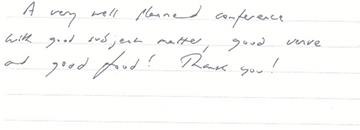 A very well planned conference
with good subject matter, good venue
and good food! Thank you!